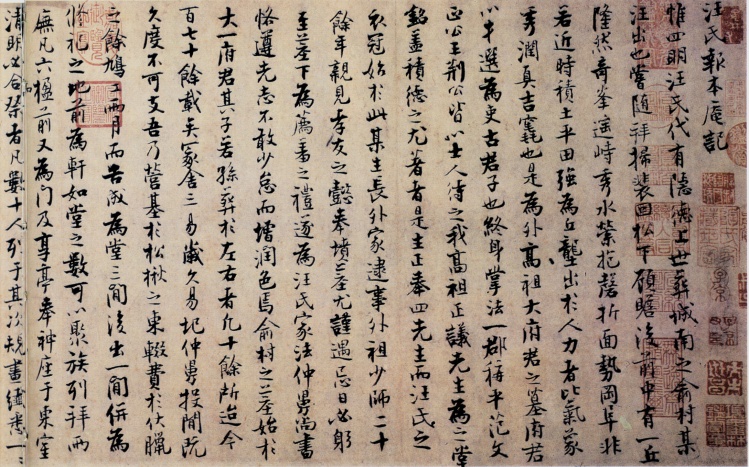 汪氏報本庵記
惟四明汪氏代有隱德上世葬城南之俞村某
汪出也嘗隨拜掃裴回松下顧瞻後前中有一丘
隆然奇峯遥峙秀水縈抱磬折面勢岡阜非
若近時積土平田強為丘壟出於人力者比氣象
秀潤真吉竁也是為外高祖大府君之墓府君
以才選為吏古君子也終身掌法一郡稱平范文
正公王荆公皆以士人待之我高祖正議先生為之堂
銘盖積德之尤著者是生正奉四先生而汪氏之
衣冠始於此某生長外家逮事外祖少師二十
餘年親見孝友之懿奉墳墓尤謹遇忌日必躬
至墓下為薦羞之禮遂為汪氏家法仲舅尚書
恪遵先志不敢少怠而增潤色焉俞村之墓始於
大一府君其子若孫葬於左右者凡十餘所迨今
百七十餘載矣冢舍三易歲久易圮仲舅投閒既
久度不可支吾乃營基於松楸之東輟費於伏臘
之餘鳩工兩月而告成為堂三間後出一間併為
修祀之地前為軒如堂之數可以聚族列拜兩
廡凡六楹前又為門及享亭奉神座于東室
清明必合祭者凡數十人列于其次規畫纖悉一一